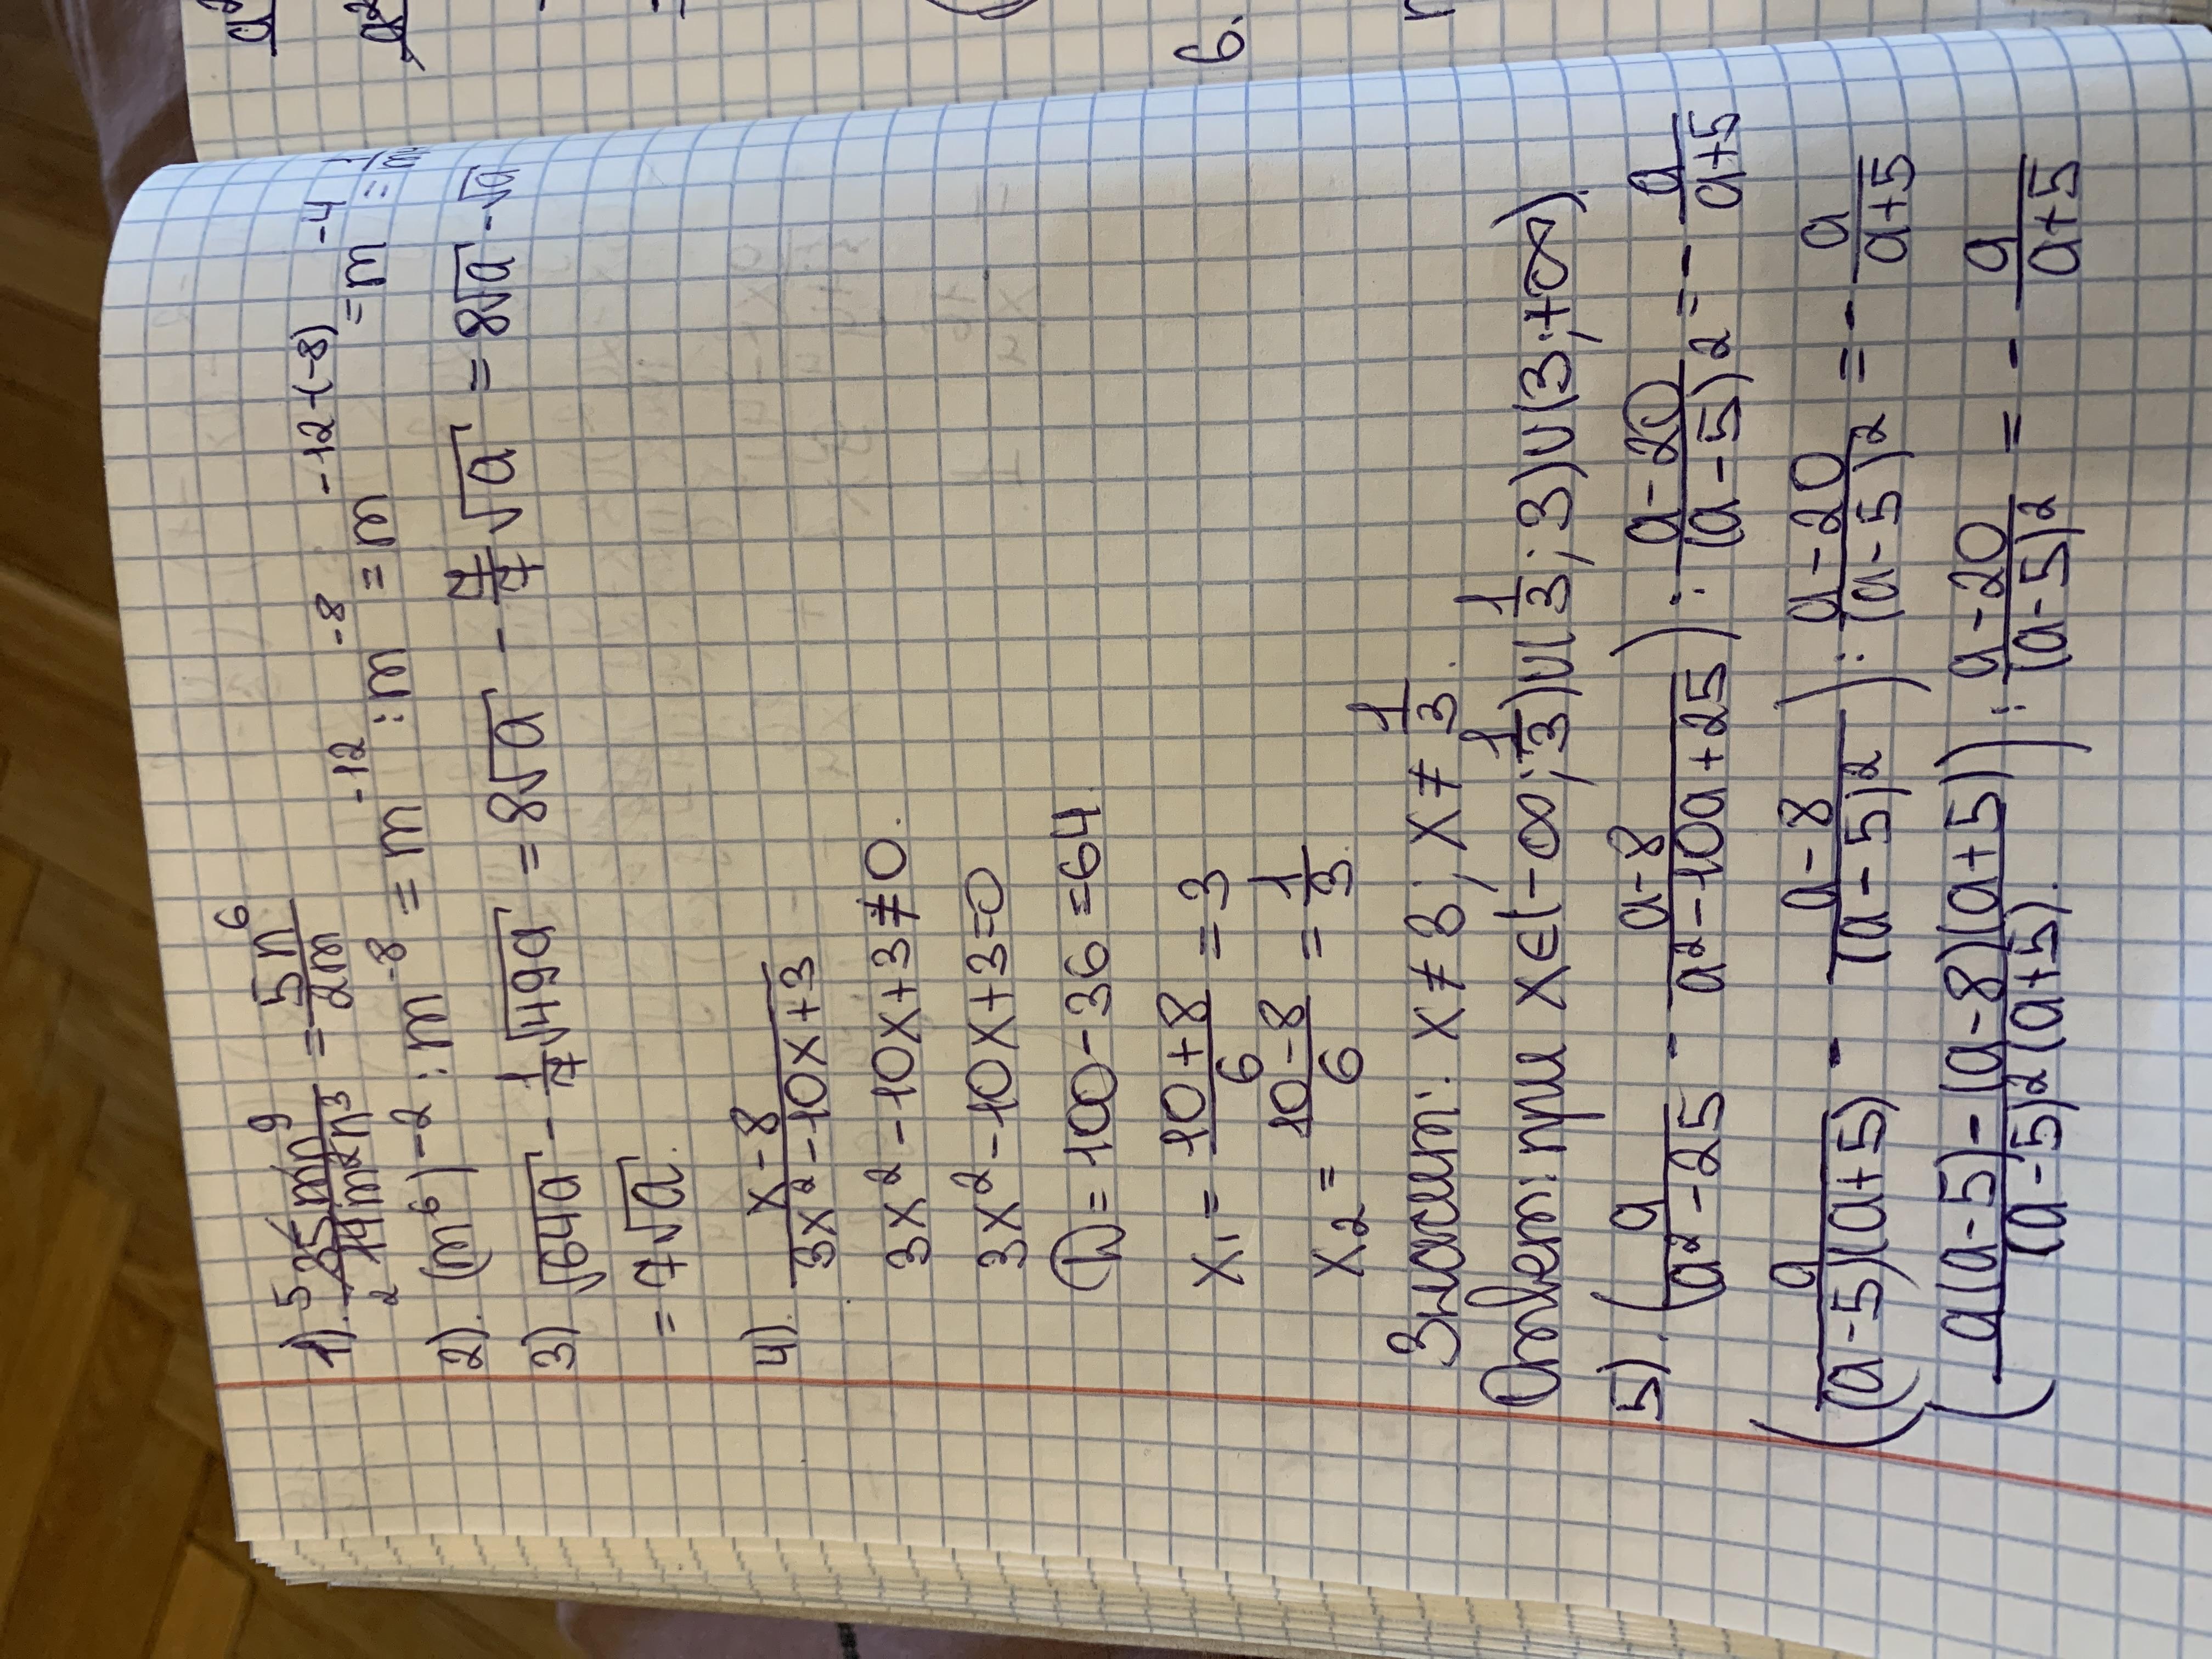 1). ⁵35mn⁹/₂14m²n³ = 5n⁶/2m
2). (m⁶)⁻² : m⁻⁸ = m⁻¹² : m⁻⁸ = m⁻¹²⁻⁽⁻⁸⁾ = m⁻⁴ =
3) √64a - 1/7 √49a = 8√a - 7/7 √a = 8√a - √a
= 7√a.
4). x-8/3x²-10x+3
3x²-10x+3≠0.
3x²-10x+3=0
D = 100-36=64.
x₁ = 10+8/6 = 3
x₂ = 10-8/6 = 1/3.
Значит: x≠3; x≠1/3.
Ответ: при x∈(-∞; 1/3)∪(1/3; 3)∪(3; +∞).
5). (a/a²-25 - a-8/a²-10a+25) : a-20/(a-5)² = - a/a+5
(a/(a-5)(a+5) - a-8/(a-5)²) : a-20/(a-5)² = - a/a+5
(a(a-5)-(a-8)(a+5)/(a-5)²(a+5).) : a-20/(a-5)² = - a/a+5
6.